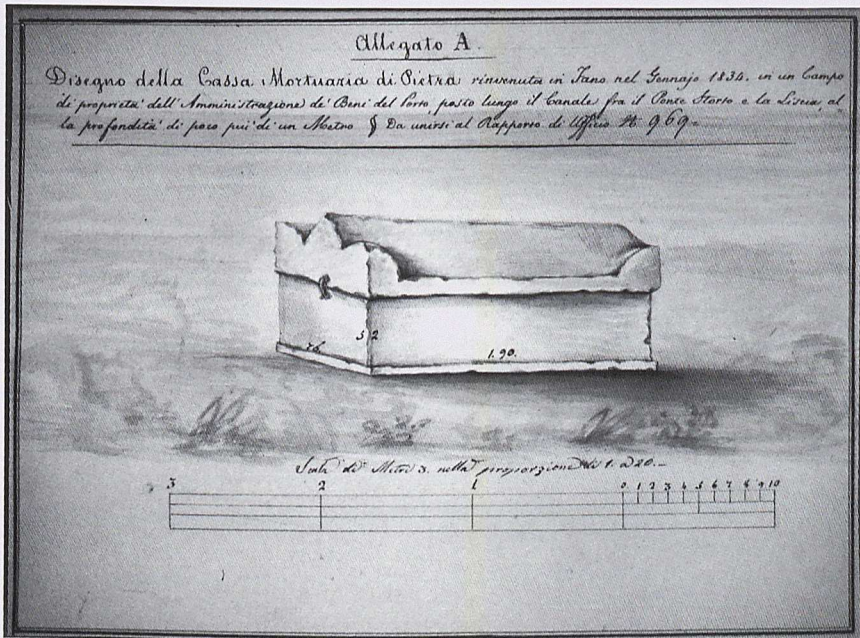 Allegato A.
Disegno della Cassa Mortuaria di Pietra rinvenuta in Fano nel Gennajo 1834. in un Campo
di proprietà dell'Amministrazione de' Beni del Porto, posto lungo il Canale fra il Ponte Storto e la Liscia, al
la profondità di poco più di un Metro § Da unirsi al Rapporto di Ufficio N 969=
52
1.90.
Scala di Metri 3. nella proporzione di 1. a 20.=
3 2 1 0 1 2 3 4 5 6 7 8 9 10